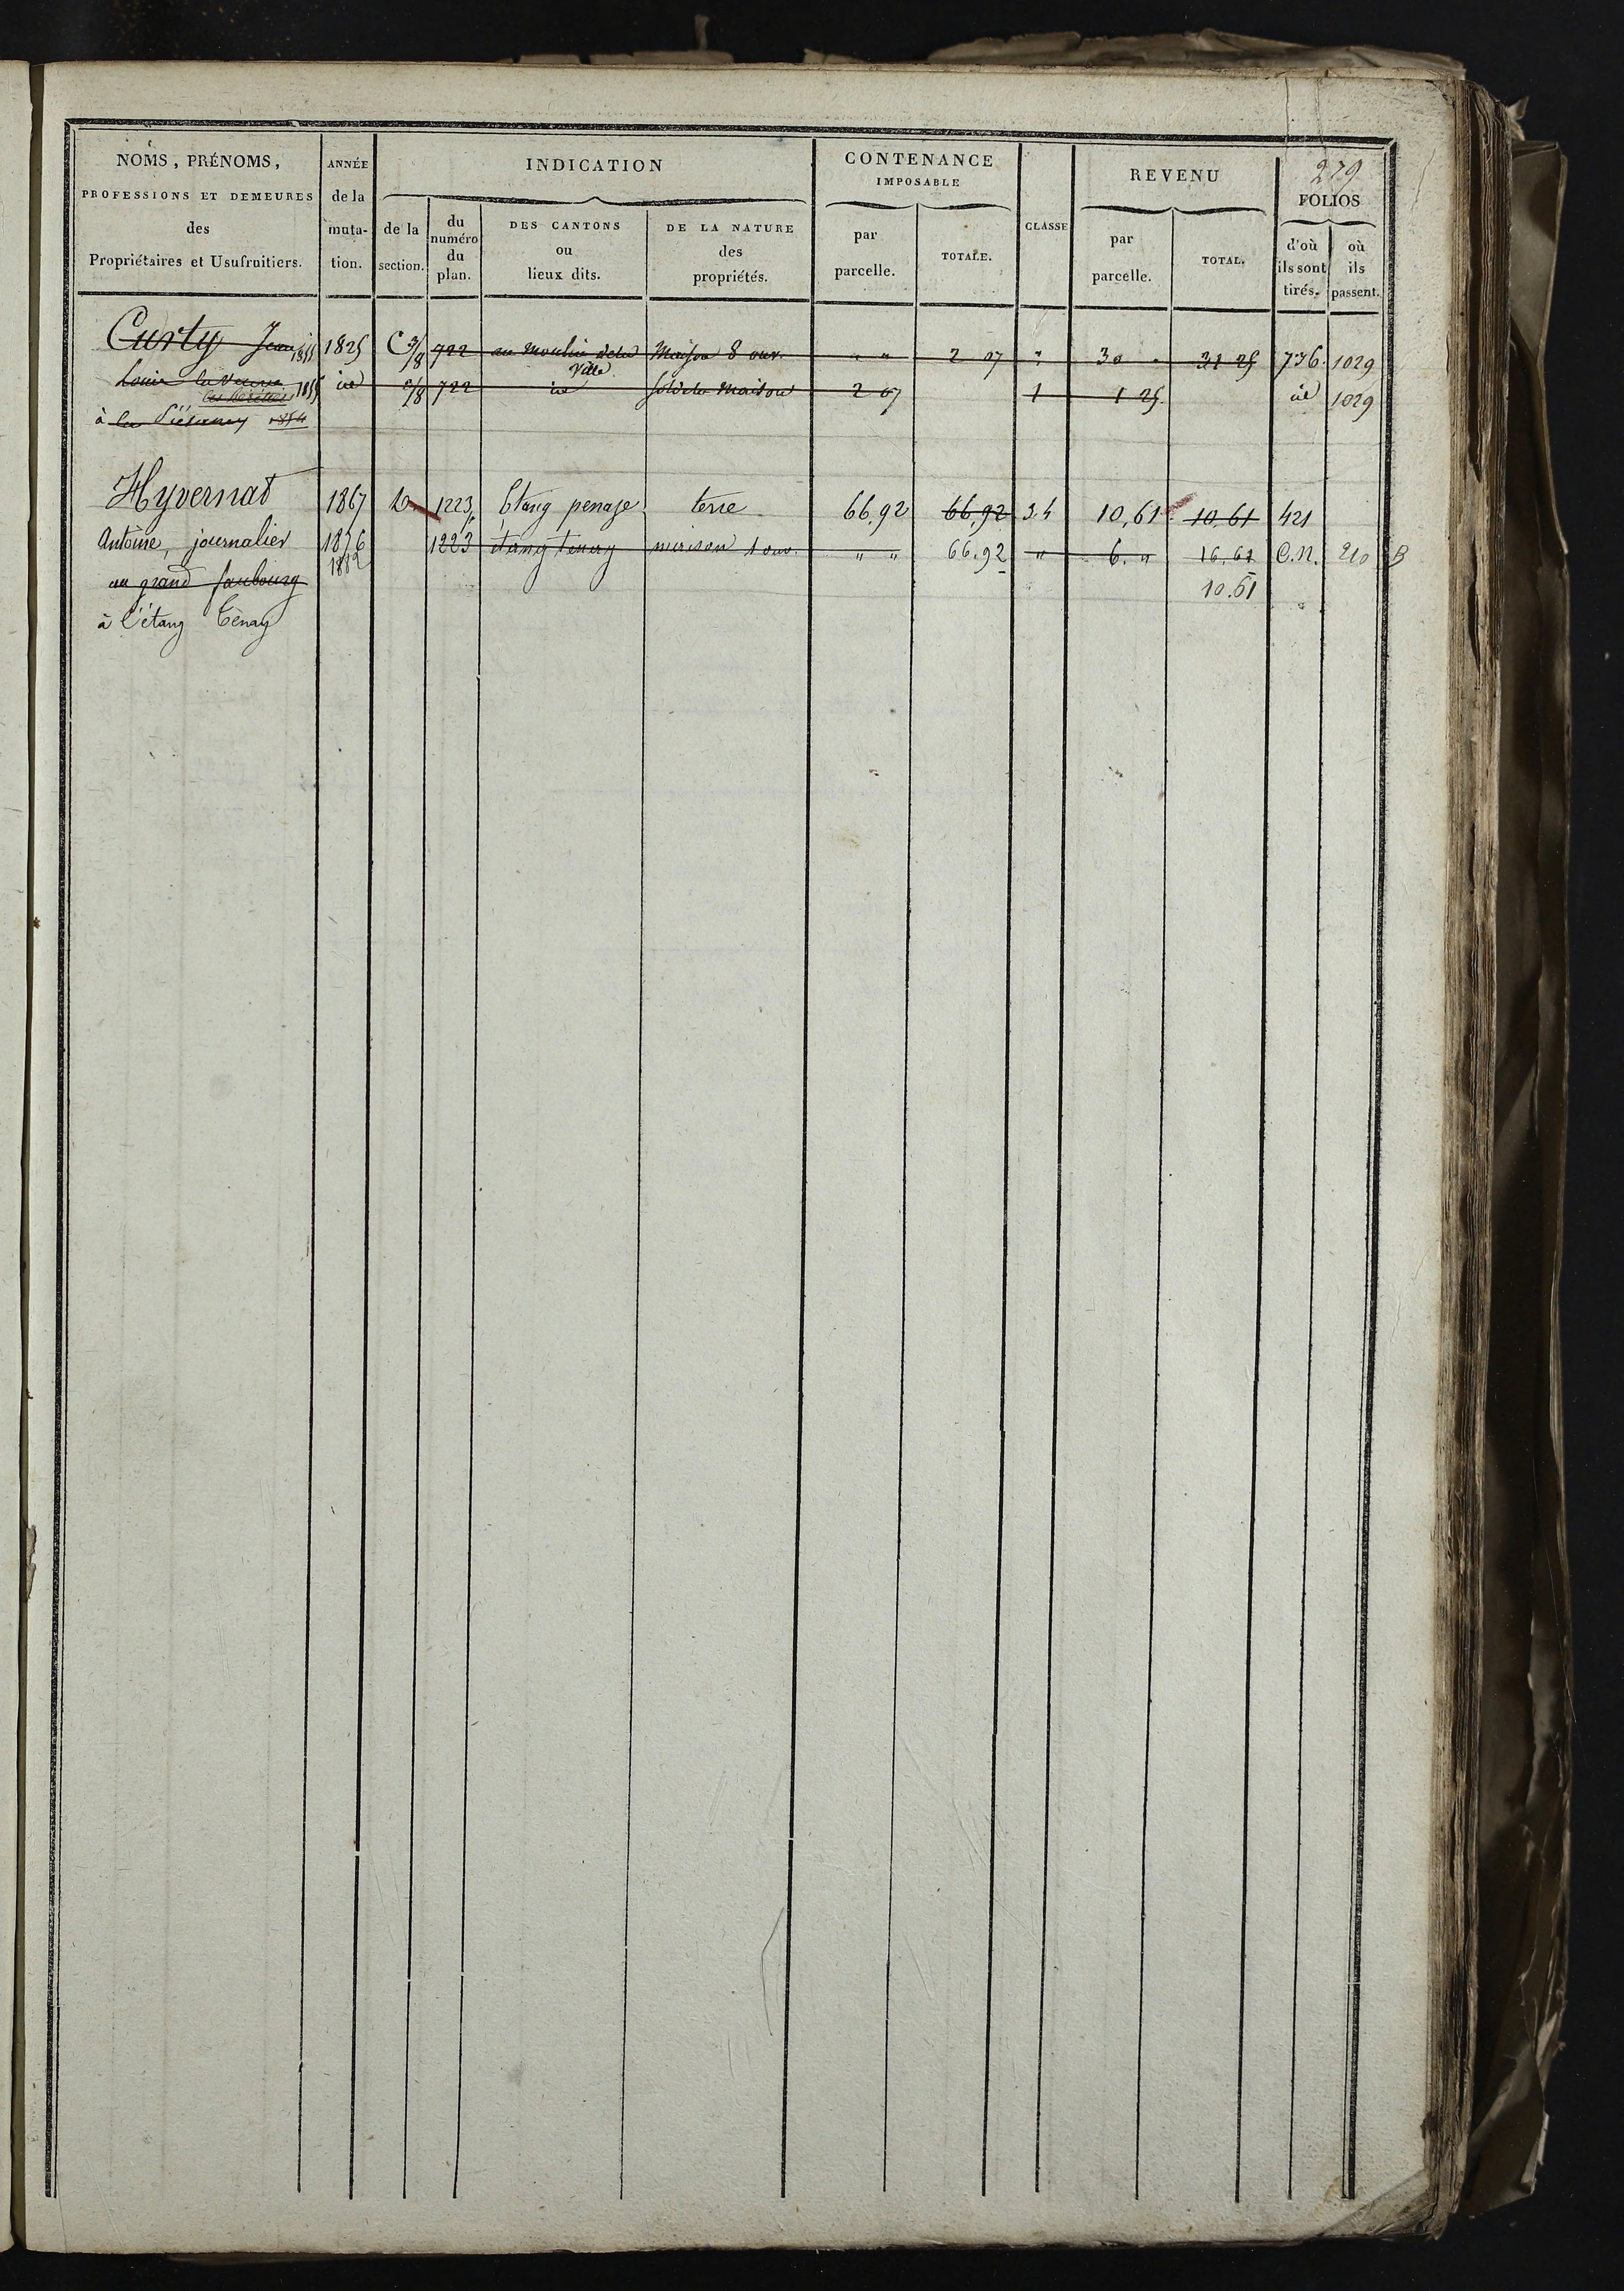 279
NOMS, PRÉNOMS,
PROFESSIONS ET DEMEURES
des
Propriétaires et Usufruitiers.
ANNÉE
de la
muta-
tion.
INDICATION
de la
section.
du
numéro
du
plan.
DES CANTONS
ou
lieux dits.
DE LA NATURE
des
propriétés.
CONTENANCE
IMPOSABLE
par
parcelle.
TOTALE.
CLASSE
REVENU
par
parcelle.
TOTAL.
FOLIOS
d'où
ils sont
tirés.
où
ils
passent.
Curty Jean 1855 1825 C 3/8 722 au Moulin de la Ville Maison 8 ouv. " " 2 07 " 30 " 31 25 736 1029
Louis la Veuve 1855 id /8 722 id Sol de la Maison 2 07 1 1 25 id 1029
les héritiers
à la 1854
Hyvernat 1867 D 1223 Etang penage terre 66,92 66,92 3.4 10,61 10,61 421
Antoine, journalier 1876 1223 étang tenay maison 1 ouv. " " 66.92 " 6. " 16.61 C.N. 210 B
1882
au grand faubourg 10.61
à l'étang Tenay